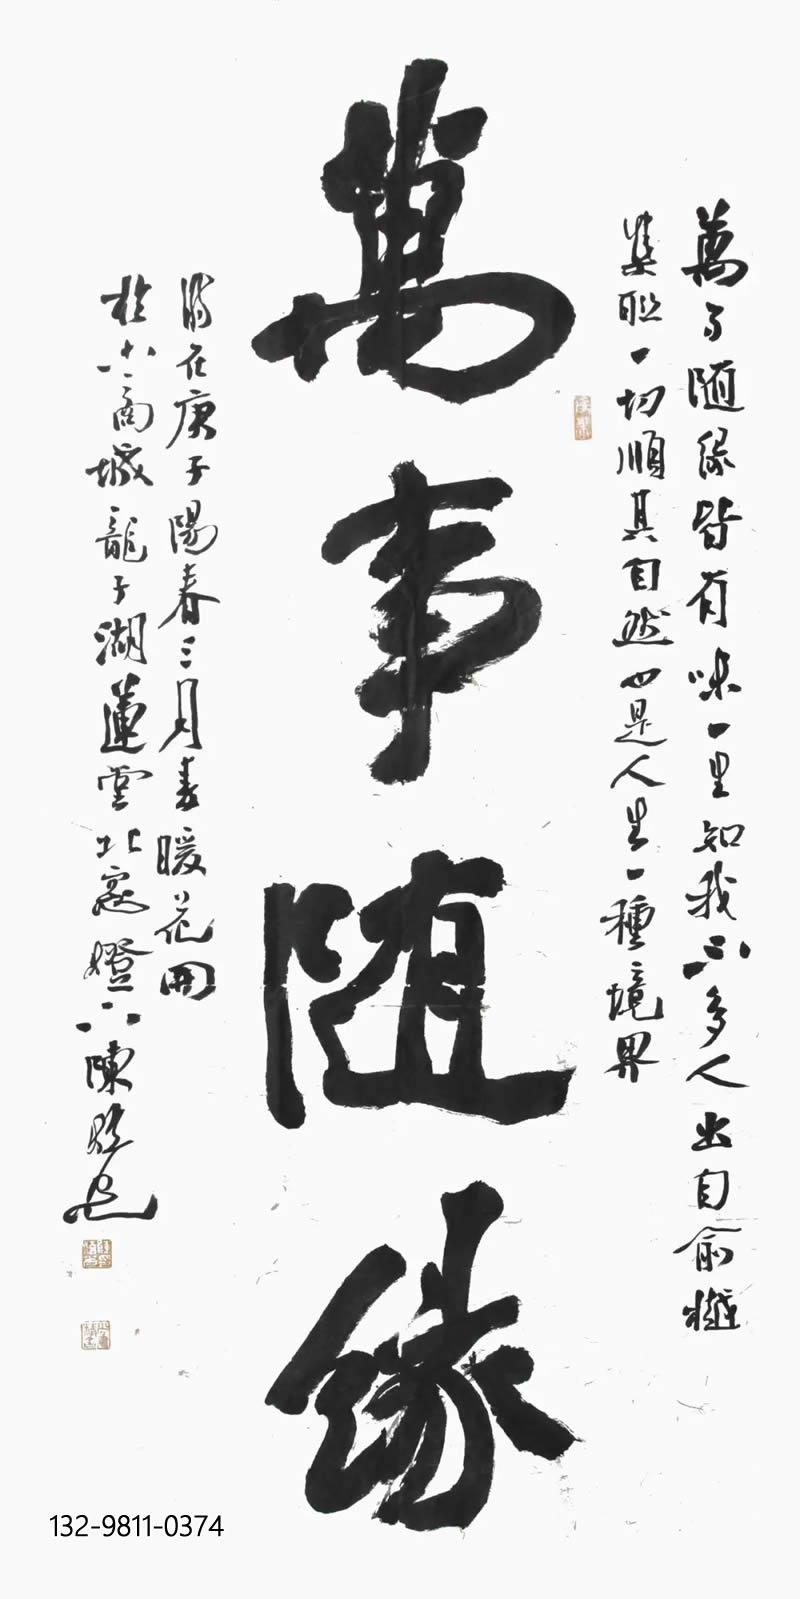 萬事随緣皆有味一里知我不多人出自俞樾
集聯一切順其自然也是人生一種境界
萬事随緣
時在庚子陽春三月春暖花開
於商城龍子湖蓮堂北窓燈下陳
132-9811-0374